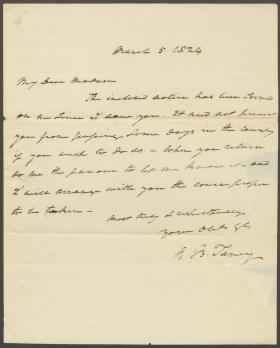 March 5 1824
My Dear Madam
The inclosed notice has been served
on me since I saw you. It need not prevent
you from passing some days in the country
if you wish to do so – When you return
do me the favour to let me know it – and
I will arrange with you the course proper
to be taken –
Most truly & respectfully
your Obt St
R B Taney